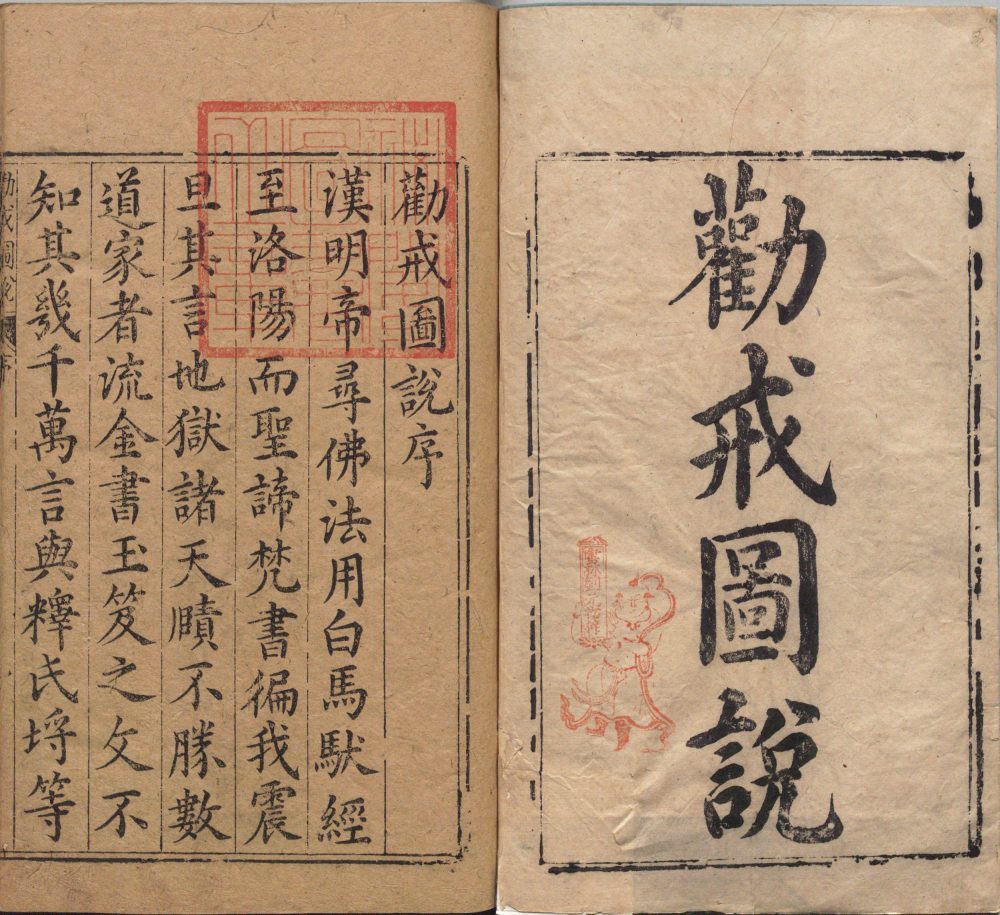 勸戒圖說
勸戒圖說序
漢明帝尋佛法用白馬馱經
至洛陽而聖諦梵書徧我震
旦其言地獄諸天賾不勝數
道家者流金書玉笈之文不
知其幾千萬言與釋氏埒等